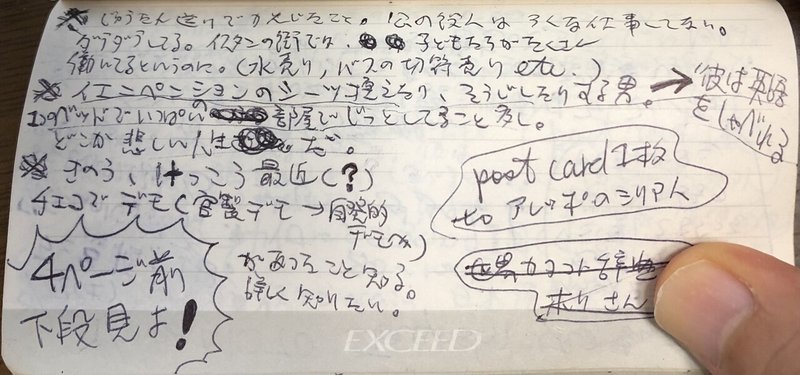 ※じゅうたん送りでかんじたこと。公の役人はろくな仕事してない。
ダラダラしてる。イスタンの街では、子どもたちがたくさん
働いてるというのに。(水売り、バスの切符売り etc.)
※イエニペンションのシーツ換えたり、そうじしたりする男。→彼は英語をしゃべれる
1つのベッドでいっぱいの部屋でじっとしてること多し。
どこか悲しい人生だ。
※きのう、けっこう最近(?)
チェコでデモ(官製デモ→自発的デモ)
があったこと知る。
詳しく知りたい。
4ページ前
下段見よ!
post card 1枚
to アレッポのシリア人
さん
EXCEED